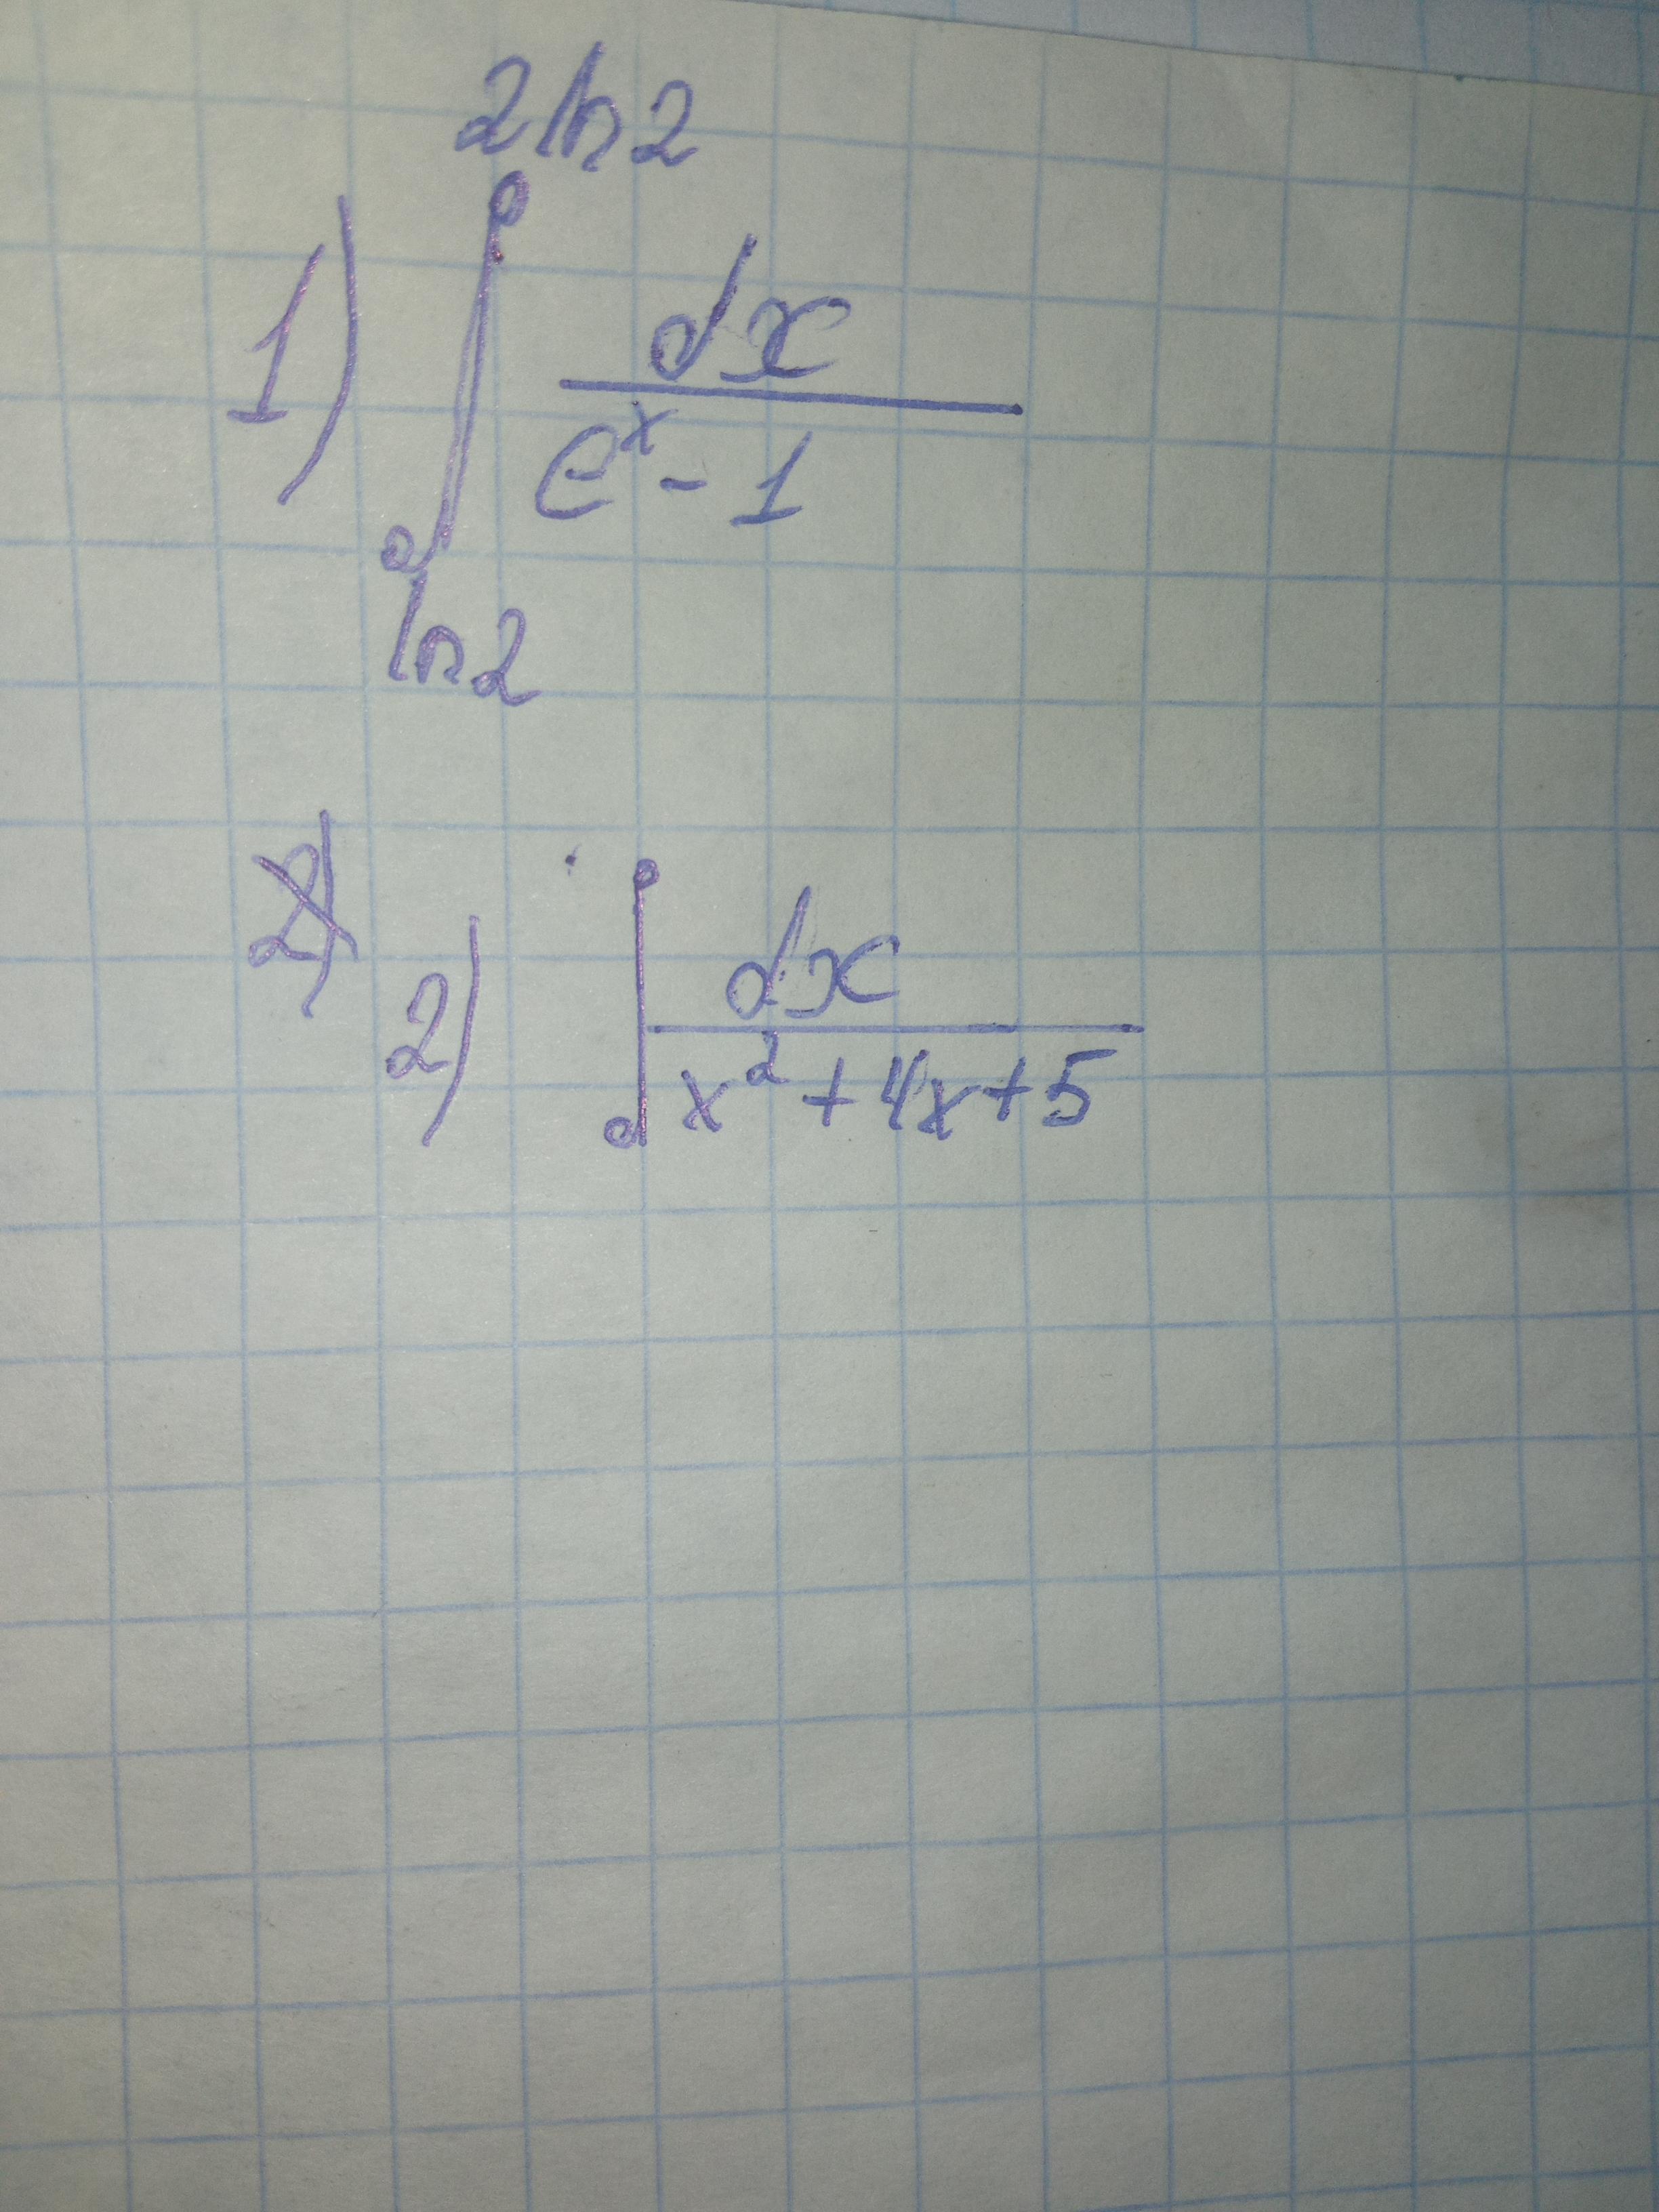 1) ∫_{ln2}^{2ln2} dx/(e^x - 1)
2)
2) ∫ dx/(x^2 + 4x + 5)